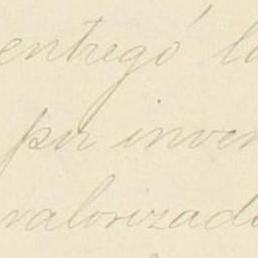 entregó la
por inven
valorizad